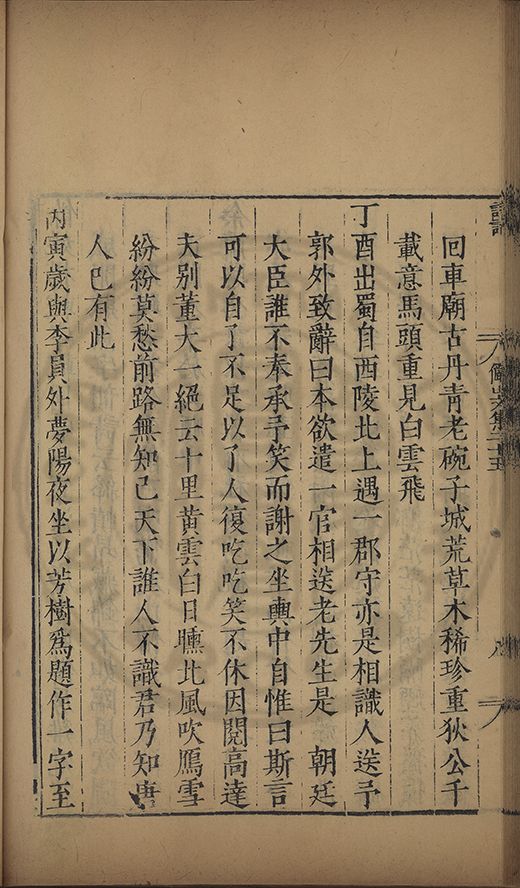 回車廟古丹青老碗子城荒草木稀珍重狄公千
載意馬頭重見白雲飛
丁酉出蜀自西陵北上遇一郡守亦是相識人送予
郭外致辭曰本欲遣一官相送老先生是　朝廷
大臣誰不奉承予笑而謝之坐輿中自惟曰斯言
可以自了不足以了人復吃吃笑不休因閱高達
夫別董大一絕云十里黃雲白日曛北風吹鴈雪
紛紛莫愁前路無知己天下誰人不識君乃知唐
人已有此
丙寅歲與李員外夢陽夜坐以芳樹爲題作一字至
儼山集
八